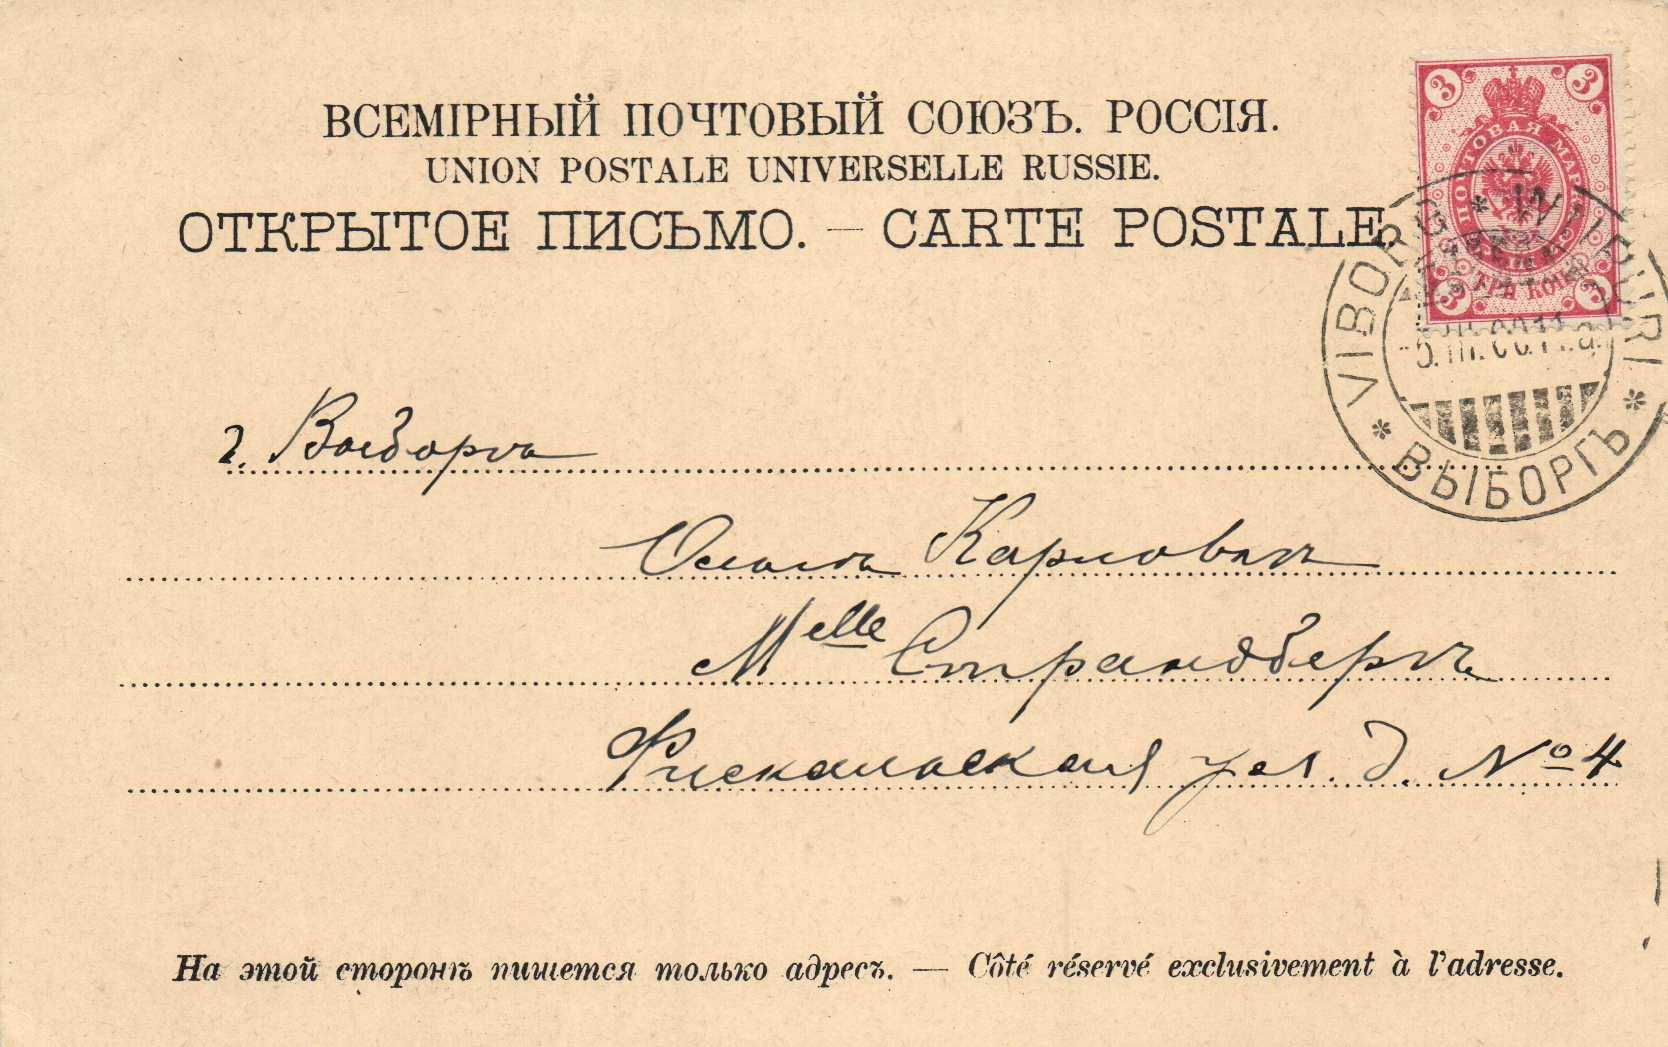 ВСЕМІРНЫЙ ПОЧТОВЫЙ СОЮЗЪ. РОССІЯ.
UNION POSTALE UNIVERSELLE RUSSIE.
ОТКРЫТОЕ ПИСЬМО. — CARTE POSTALE
3 3
ПОЧТОВАЯ МАРКА
ТРИ КОП.
3 3
VIBORG * WIIPURI * ВЫБОРГЪ *
г. Выборгъ
Карловнѣ
Melle Страндбергъ
Фискальская ул. д. № 4
На этой сторонѣ пишется только адресъ. — Côté réservé exclusivement à l'adresse.